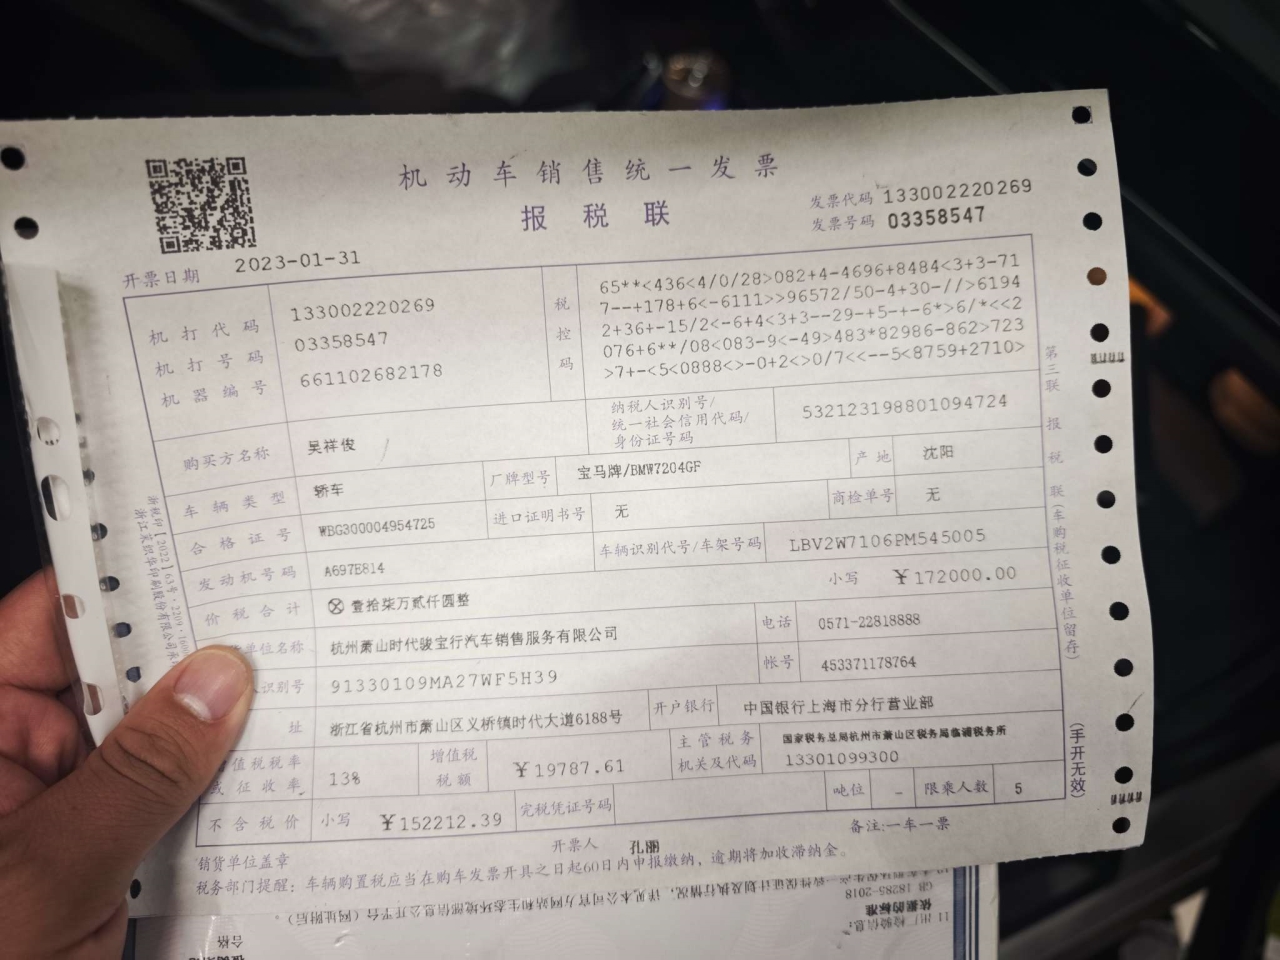 机动车销售统一发票
报税联
发票代码 133002220269
发票号码 03358547
开票日期 2023-01-31
机打代码 133002220269
机打号码 03358547
机器编号 661102682178
税控码
65**<436<4/0/28>082+4-4696+8484<3+3-71
7--+178+6<-6111>>96572/50-4+30-//>6194
2+36+-15/2<-6+4<3+3--29-+5-+-6*>6/*<<2
076+6**/08<083-9<-49>483*82986-862>723
>7+-<5<0888<>-0+2<>0/7<<--5<8759+2710>
购买方名称 吴祥俊
纳税人识别号/
统一社会信用代码/
身份证号码
532123198801094724
车辆类型 轿车 厂牌型号 宝马牌/BMW7204GF 产地 沈阳
合格证号 WBG300004954725 进口证明书号 无 商检单号 无
发动机号码 A697E814 车辆识别代号/车架号码 LBV2W7106PM545005
价税合计 ⊗壹拾柒万贰仟圆整 小写 ¥172000.00
单位名称 杭州萧山时代骏宝行汽车销售服务有限公司 电话 0571-22818888
识别号 91330109MA27WF5H39 帐号 453371178764
址 浙江省杭州市萧山区义桥镇时代大道6188号 开户银行 中国银行上海市分行营业部
值税税率
或征收率
13%
增值税
税额
¥19787.61
主管税务
机关及代码
国家税务总局杭州市萧山区税务局临浦税务所
13301099300
不含税价 小写 ¥152212.39 完税凭证号码 吨位 - 限乘人数 5
销货单位盖章 开票人 孔丽 备注:一车一票
税务部门提醒：车辆购置税应当在购车发票开具之日起60日内申报缴纳，逾期将加收滞纳金。
第三联 报税联(车购税征收单位留存)
(手开无效)
依据的标准
GB 18285-2018
11 出厂检验信息:
合格